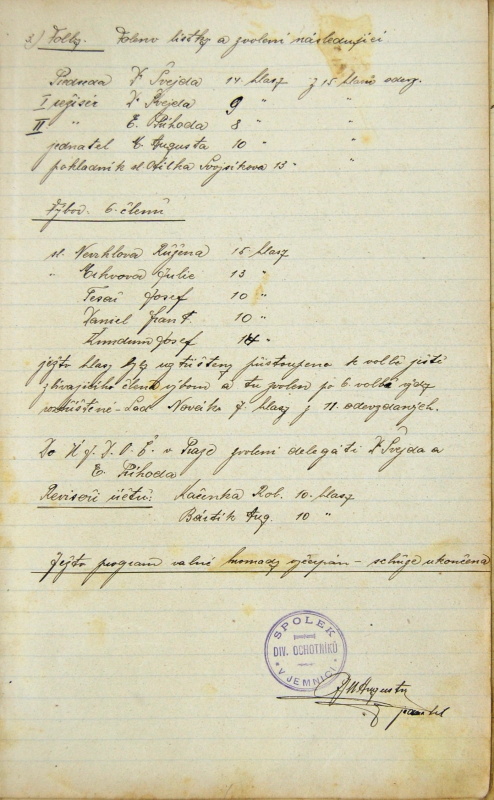 3.) Volby. Voleno lístky a zvoleni následující
Předseda V. Švejda 14 hlasy z 15 hlasů odevz.
I režisér V. Švejda 9 " "
II " E. Příhoda 8 " "
jednatel Augusta 10 " "
pokladník sl. Otilka Svojsíkova 13 " "
Výbor. 6. členů
sl. Nevrhlova Růžena 15. hlasy
" Julie 13 "
Tesař Josef 10 "
Daniel Frant. 10 "
Josef 14 "
jejto hlasy byly roztříštěny přistoupeno k volbě ještě
zbývajícího člena výboru a tu zvolen po 6 volbě vždy
roztříštěné - Lad. Novák 7. hlasy z 11. odevzdaných.
Do v Praze zvoleni delegáti V. Švejda a
E. Příhoda
Revisorů účtů: Kačenka Rob. 10. hlasy
Bártík Aug. 10 "
Jejto program valné hromady vyčerpán - schůze ukončena
SPOLEK
DIV. OCHOTNÍKŮ
V JEMNICI
Augusta
jednatel